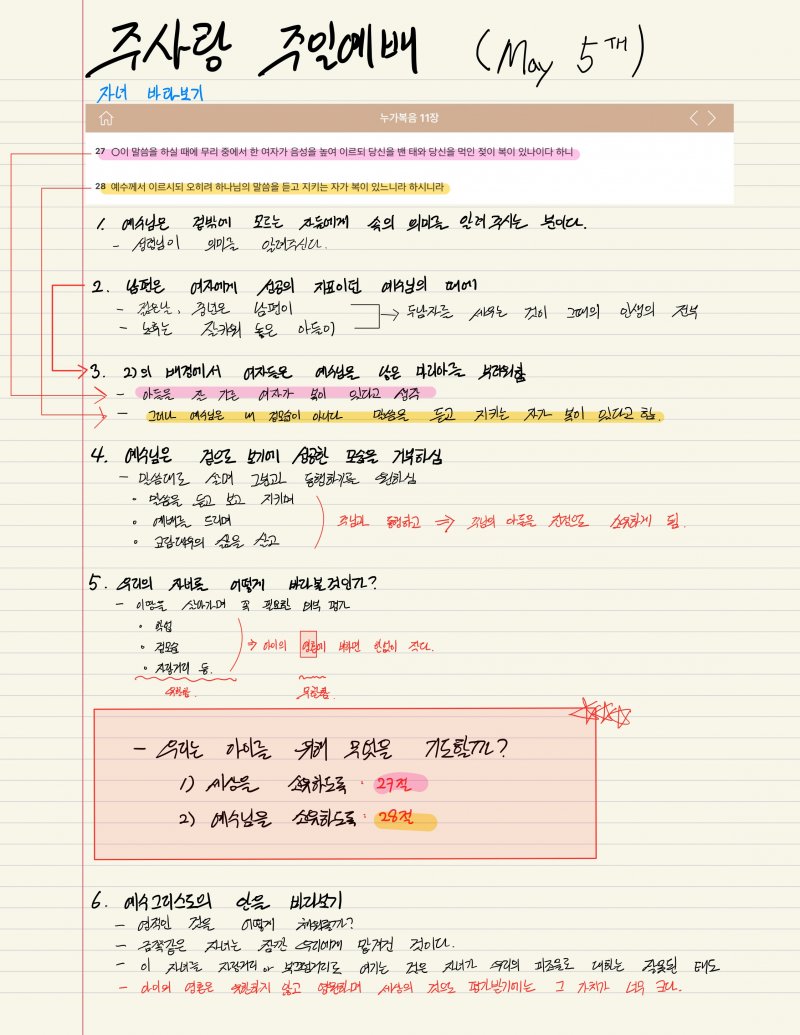 주사랑 주일예배 (May 5th)
자녀 바라보기
누가복음 11장
27 ○이 말씀을 하실 때에 무리 중에서 한 여자가 음성을 높여 이르되 당신을 밴 태와 당신을 먹인 젖이 복이 있나이다 하니
28 예수께서 이르시되 오히려 하나님의 말씀을 듣고 지키는 자가 복이 있느니라 하시니라
1. 예수님은 겉밖에 모르는 자들에게 속의 의미를 알려 주시는 분이다.
- 성경님이 의미를 알려주신다.
2. 남편은 여자에게 성공의 지표이던 예수님의 때에
- 젊은날, 중년은 남편이
- 노후는 잘키워 놓은 아들이
→ 두남자를 세우는 것이 그때의 인생의 전부
3. 2)의 배경에서 여자들은 예수님을 낳은 마리아를 부러워함
- 아들을 잘 키운 여자가 복이 있다고 생각
- 그러나 예수님은 내 겉모습이 아니다 말씀을 듣고 지키는 자가 복이 있다고 함.
4. 예수님은 겉으로 보기에 성공한 모습을 거부하심
- 말씀대로 살며 그분과 동행하기를 원하심
• 말씀을 듣고 보고 지키며
• 예배를 드리며
• 고람데우의 삶을 살고
주님과 동행하고 ⇒ 주님의 마음을 진정으로 소유하게 됨.
5. 우리의 자녀를 어떻게 바라볼것인가?
- 이땅을 살아가며 꼭 필요한 외부 평가
• 학업
• 겉모습
• 자랑거리 등.
⇒ 아이의 영혼에 비하면 한없이 작다.
유한함.
무한함.
- 우리는 아이를 위해 무엇을 기도할까?
1) 세상을 소유하도록 : 27절
2) 예수님을 소유하도록 : 28절
6. 예수그리스도의 안을 바라보기
- 영적인 것을 어떻게 채워줄까?
- 금쪽같은 자녀는 잠깐 우리에게 맡겨진 것이다.
- 이 자녀를 자랑거리 or 부끄럼거리로 여기는 것은 자녀가 우리의 피조물로 대하는 잘못된 태도
- 아이의 영혼은 유한하지 않고 영원하며 세상의 것으로 평가받기에는 그 가치가 너무 크다.